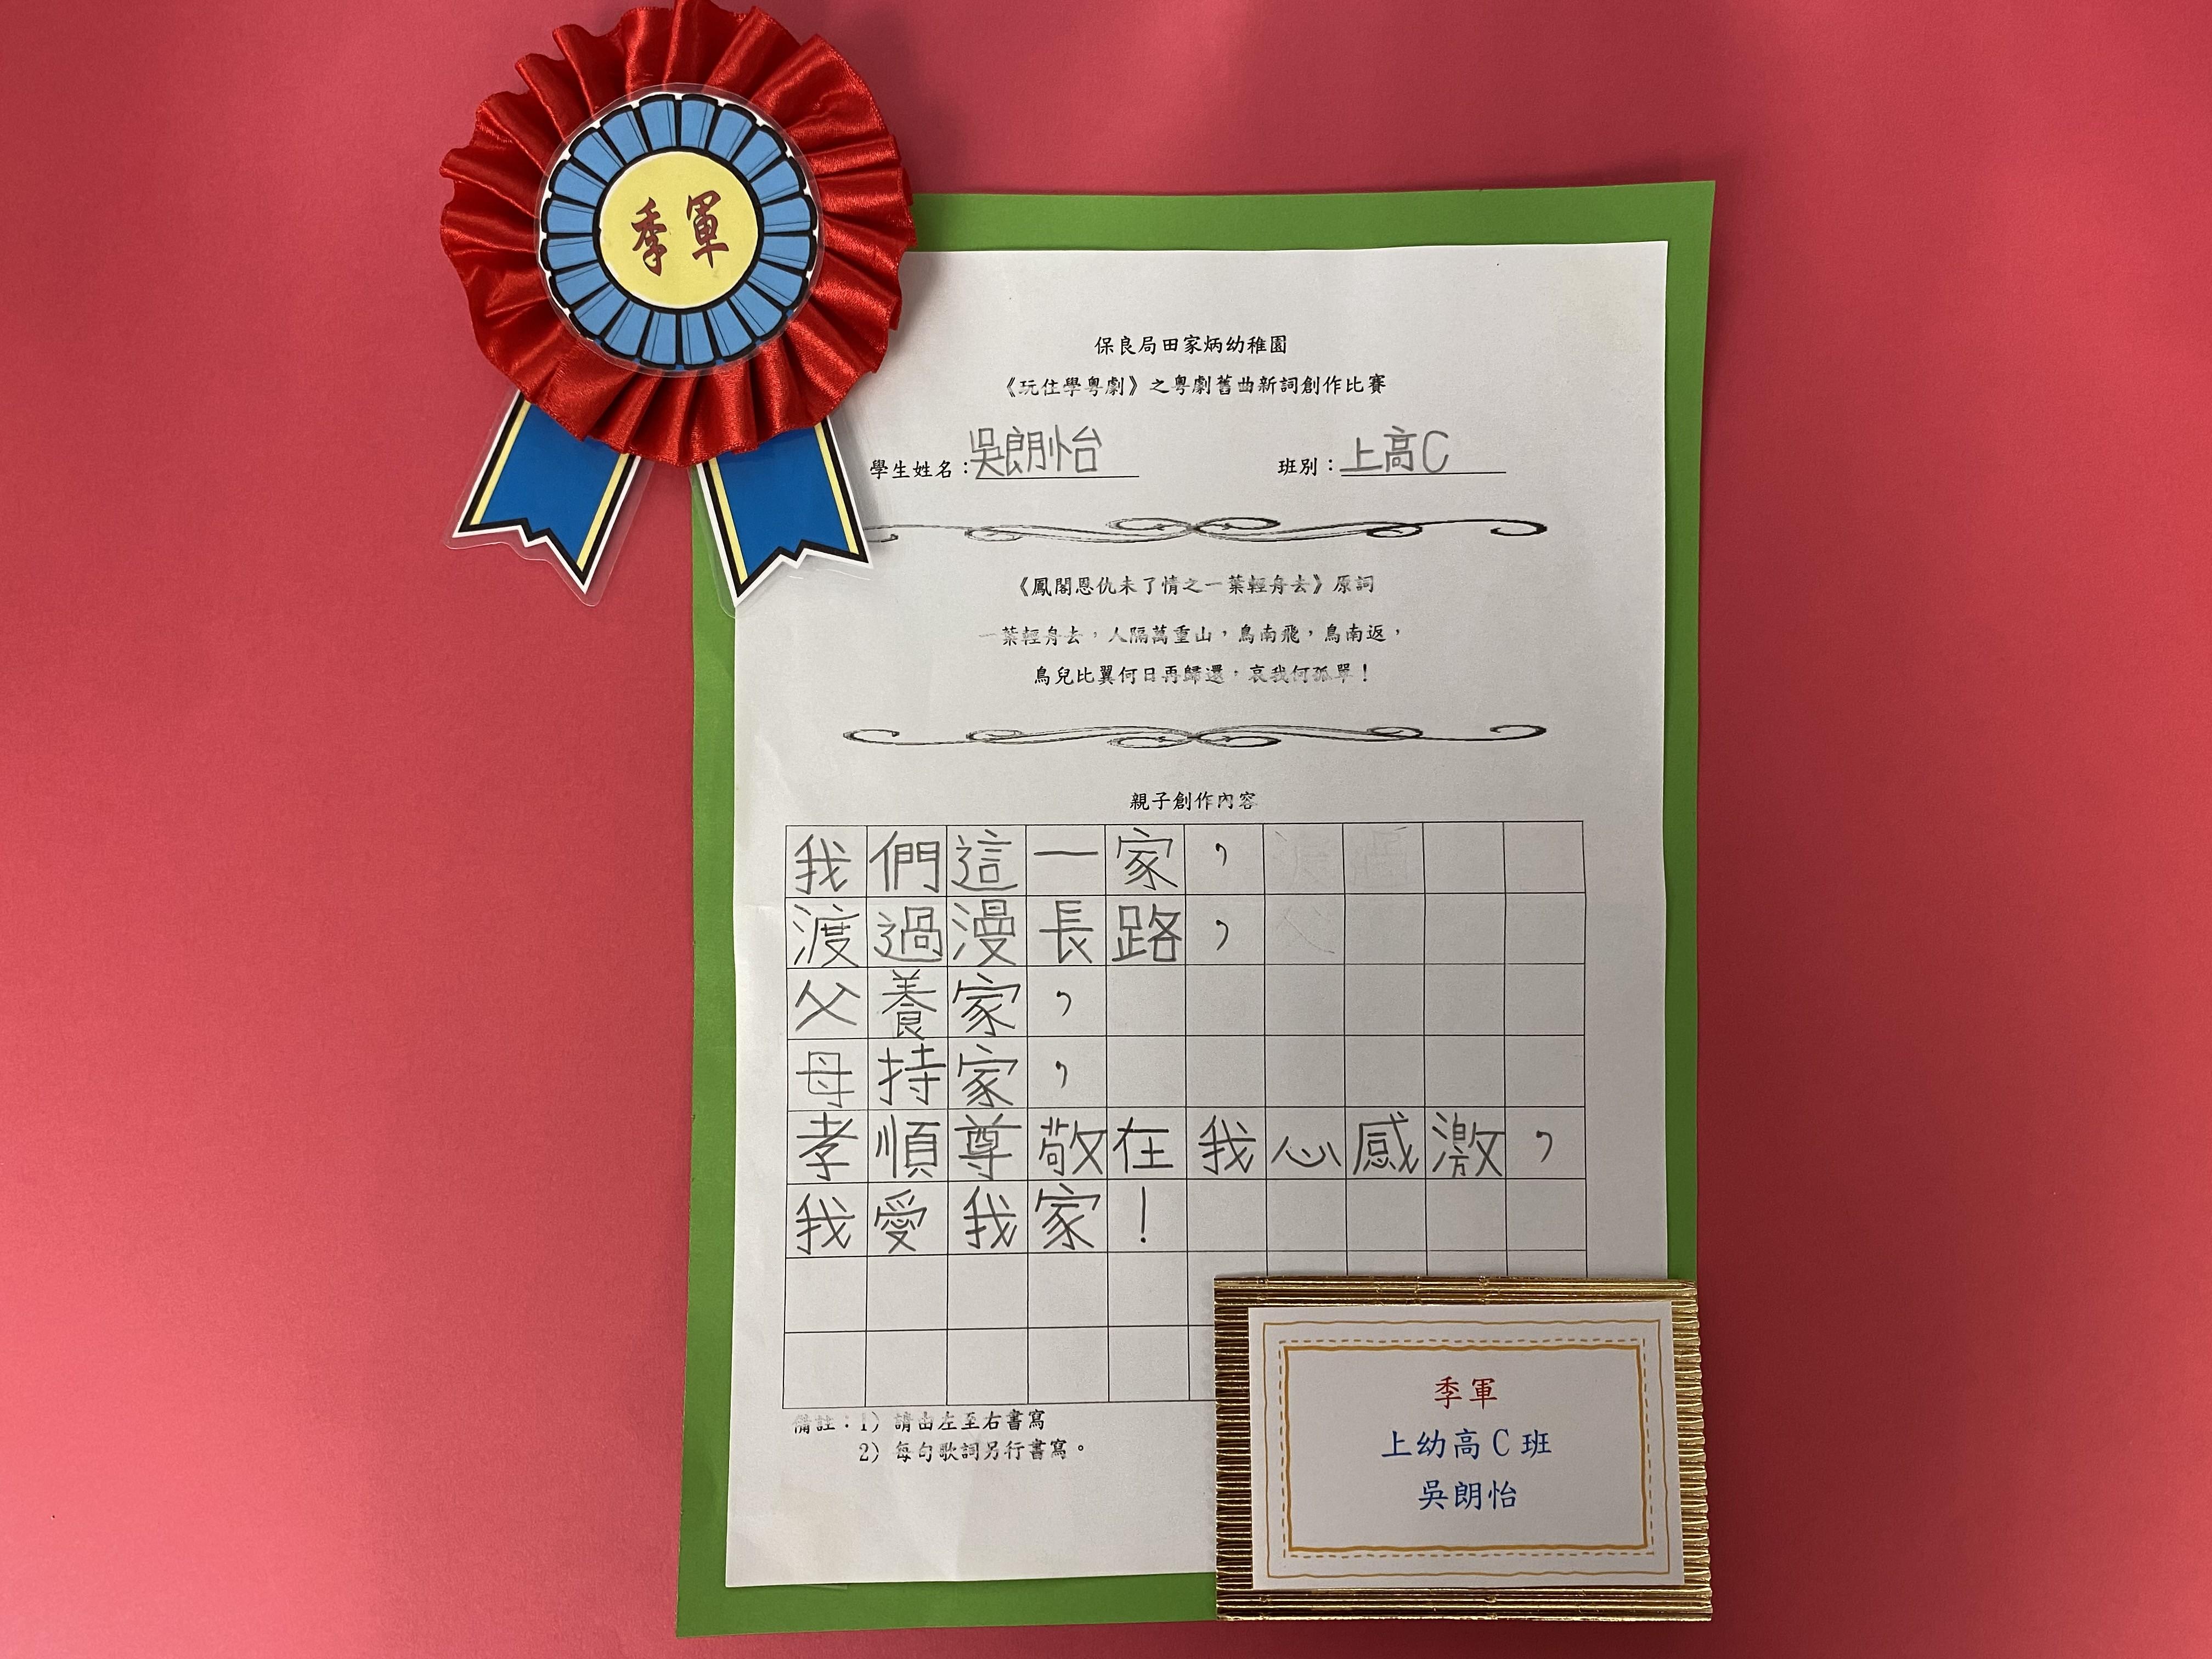 季軍
保良局田家炳幼稚園
《玩住學粵劇》之粵劇舊曲新詞創作比賽
學生姓名：吳朗怡 班別：上高C
《鳳閣恩仇未了情之一葉輕舟去》原詞
一葉輕舟去，人隔萬重山，鳥南飛，鳥南返，
鳥兒比翼何日再歸還，哀我何孤單！
親子創作內容
我們這一家，
渡過漫長路，
父養家，
母持家，
孝順尊敬在我心感激，
我愛我家！
備註：1) 請由左至右書寫
2) 每句歌詞另行書寫。
季軍
上幼高C班
吳朗怡